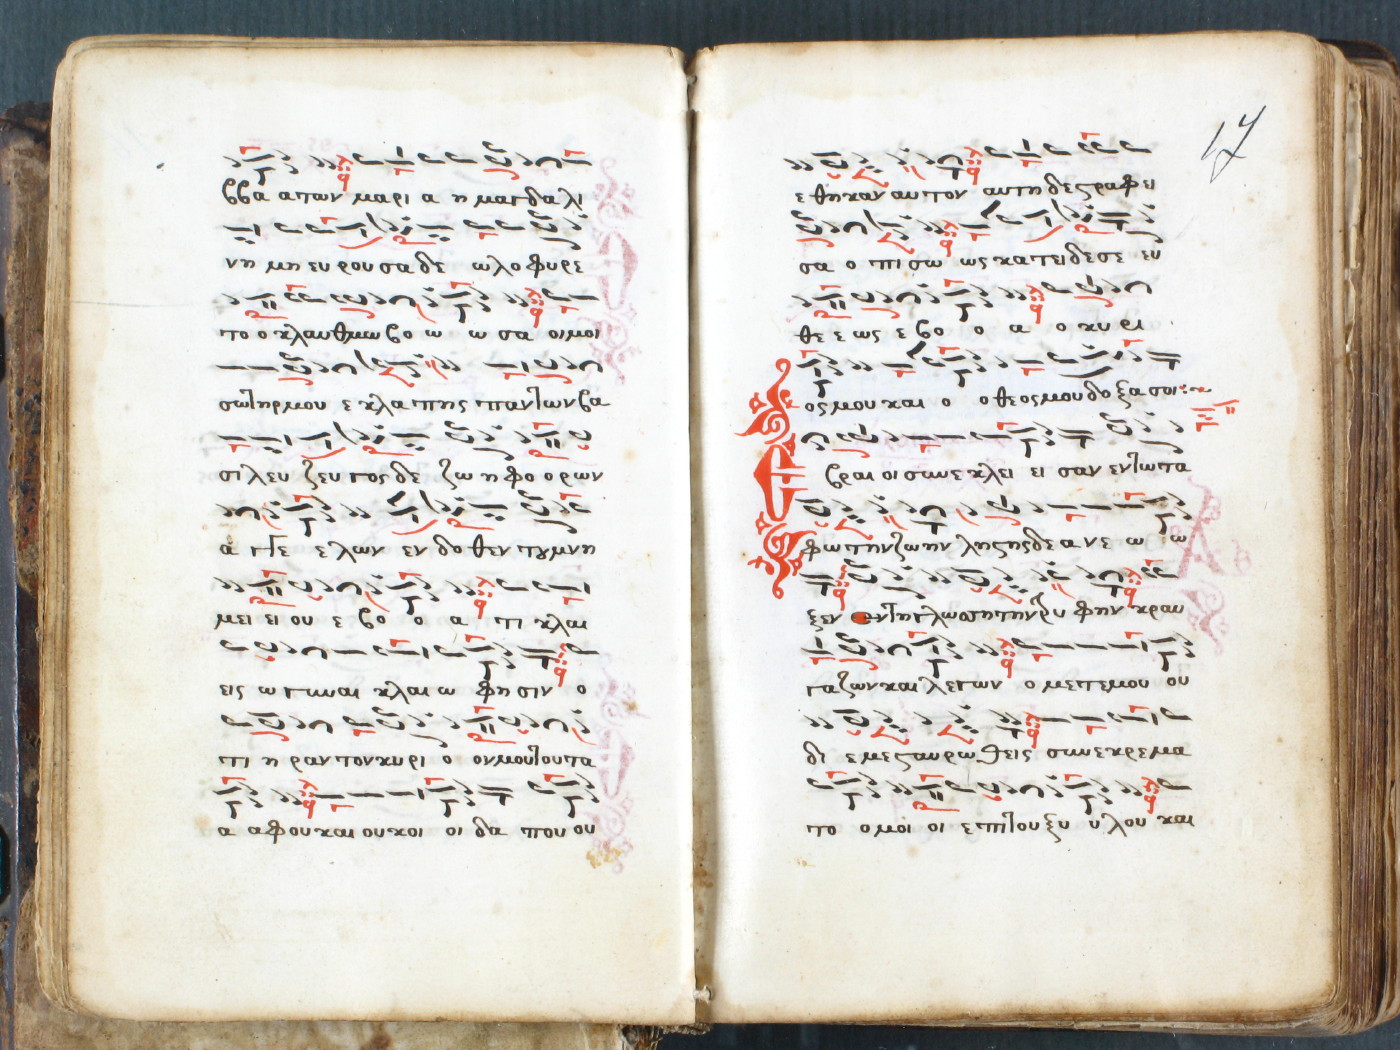 ββα α των μαρι α η μαγδαλι
νη μη ευ ρου σα δε ωλο φυρε
το ο κλαυθμω βο ω ω σα οιμοι
σωτηρ μου ε κλα πης παντων βα
σι λευ ζευ γος δε ζω η φο ο ρων
α γγε ε λων εν δο θεν του μνη
μει ει ου ε βο ο α τι κλαι
εις ω γυναι κλαι ω φη σιν ο
τι η ραν τον κυρι ο ον μου του τα
α α φου και ουκ οι οι δα που ου
17
ε θηκαν αυ τον αυτη δε στραφει
σα ο πι σω ως κατειδε σε ευ
θε ε ως ε βο ο α ο κυρι
ος μου και ο ο θεος μου δο ξα σοι
Εβραι οι συνε κλει ει σαν εν τω τα
φω την ζωην ληστης δε α νε ω ω
ξεν εν τη γλωσση την τρυ φην κραυ
γα ζων και λεγων ο μετ εμου ου
δι εμε σταυρω θεις συνεκρεμα
το ο μοι οι επι του ξυ υλου και